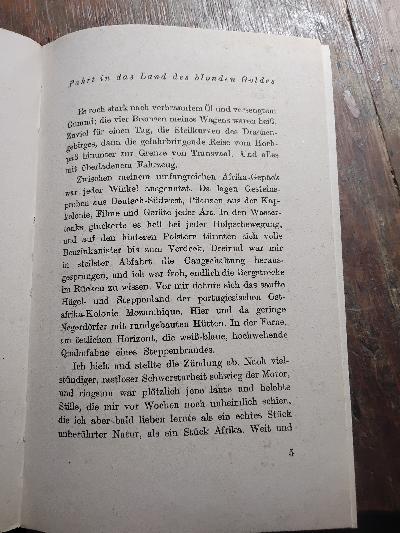 Fahrt in das Land des blonden Goldes
Es roch stark nach verbranntem Öl und versengtem
Gummi; die vier Bremsen meines Wagens waren heiß.
Zuviel für einen Tag, die Steilkurven des Drachen-
gebirges, dann die gefahrbringende Reise vom Hoch-
paß hinunter zur Grenze von Transvaal. Und alles
mit überladenem Fahrzeug.
Zwischen meinem umfangreichen Afrika-Gepäck
war jeder Winkel ausgenutzt. Da lagen Gesteins-
proben aus Deutsch-Südwest, Pflanzen aus der Kap-
kolonie, Filme und Geräte jeder Art. In den Wasser-
tanks gluckerte es hell bei jeder Holperbewegung,
und auf den hinteren Polstern türmten sich volle
Benzinkanister bis zum Verdeck. Dreimal war mir
in steilster Abfahrt die Gangschaltung heraus-
gesprungen, und ich war froh, endlich die Bergstrecke
im Rücken zu wissen. Vor mir dehnte sich das sanfte
Hügel- und Steppenland der portugiesischen Ost-
afrika-Kolonie Mozambique. Hier und da geringe
Negerdörfer mit rundgebauten Hütten. In der Ferne,
am östlichen Horizont, die weiß-blaue, hochwehende
Qualmfahne eines Steppenbrandes.
Ich hielt und stellte die Zündung ab. Nach viel-
stündiger, restloser Schwerstarbeit schwieg der Motor,
und ringsum war plötzlich jene laute und belebte
Stille, die mir vor Wochen noch unheimlich schien,
die ich aber bald lieben lernte als ein echtes Stück
unberührter Natur, als ein Stück Afrika. Weit und
5